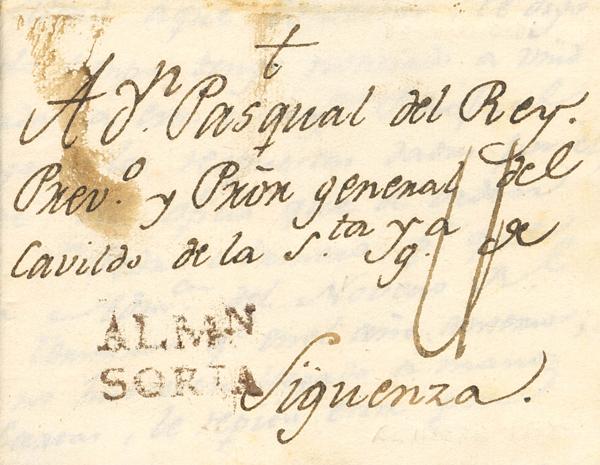 †
A Dn. Pasqual del Rey.
Prevo. y Prôn general del
Cavildo de la S.ta Yg.a de
ALMN
SORIA
Sigüenza.